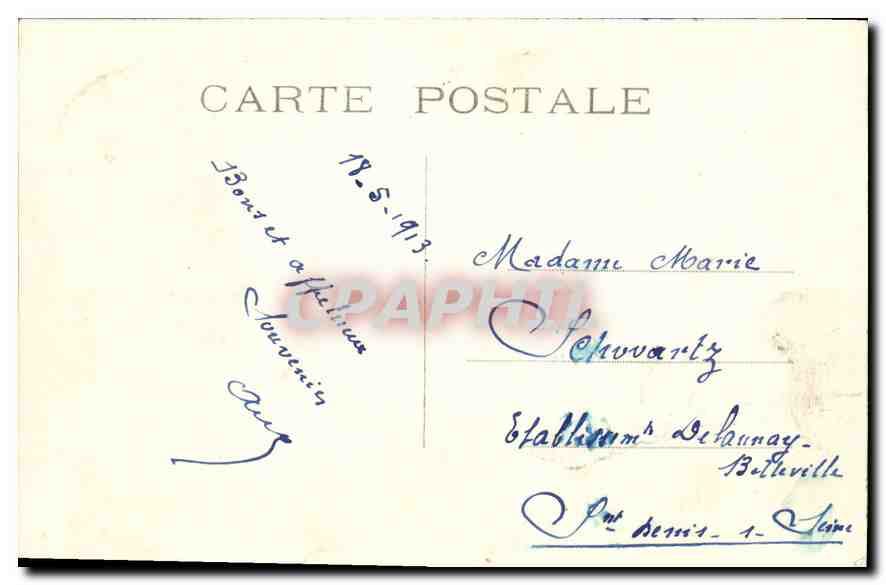 CARTE POSTALE
18-5-1913.
Bons et affectueux
Souvenirs
CPAPHIL
Madame Marie
Schwartz
Etablissemts Delaunay-
Belleville
St Denis-s-Seine